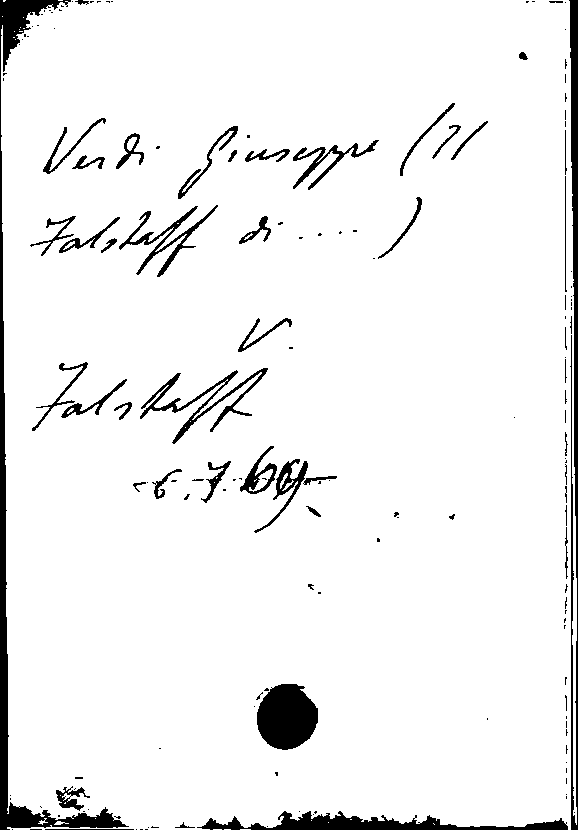 Verdi Giuseppe (Il
Falstaff di ....)
V.
Falstaff